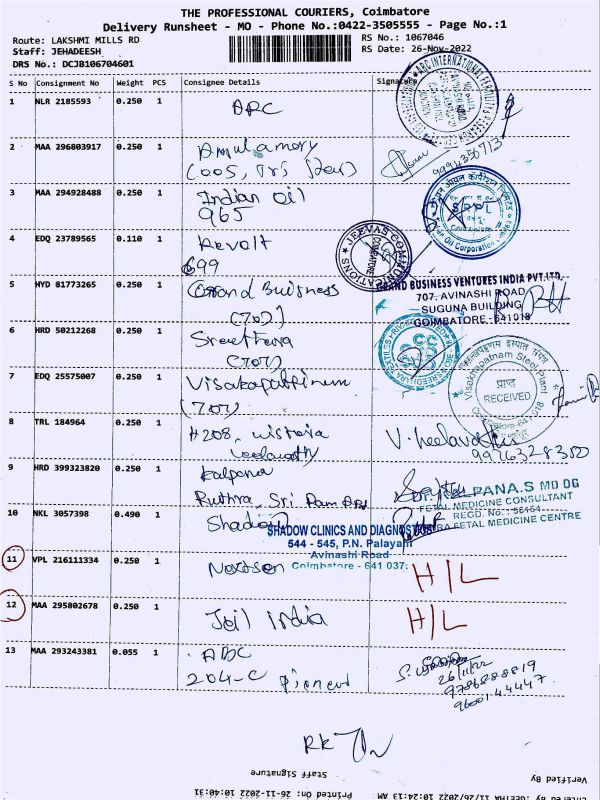 THE PROFESSIONAL COURIERS, Coimbatore
Delivery Runsheet - MO - Phone No.:0422-3505555 - Page No.:1
Route: LAKSHMI MILLS RD
RS No.: 1067046
Staff: JEHADEESH
RS Date: 26-Nov-2022
DRS No.: DCJB106704601
S No Consignment No Weight PCS Consignee Details Signature
1 NLR 2185593 0.250 1 ARC
2 MAA 296803917 0.250 1
3 MAA 294928488 0.250 1 Indian Oil
965
4 EDQ 23789565 0.110 1 Revolt
699
JEEVAS COMMUNICATIONS
COIMBATORE
5 HYD 81773265 0.250 1 Grand Business
(707)
GRAND BUSINESS VENTURES INDIA PVT.LTD.
707, AVINASHI ROAD
SUGUNA BUILDING
COIMBATORE - 641018
6 HRD 50212268 0.250 1 Sreethera
(707)
7 EDQ 25575007 0.250 1 Visakapattinum
(707)
Visakhapatnam Steel Plant
प्राप्त
RECEIVED
Coimbatore-641 018
8 TRL 184964 0.250 1 H208, wisteria
Leelavathy
V. Leelavathi
9 HRD 399323820 0.250 1 Kalpana
Ruthra, Sri Ram Apt
PANA.S MD OG
FETAL MEDICINE CONSULTANT
REGD. No.: 56164
FETAL MEDICINE CENTRE
10 NKL 3057398 0.490 1 Shadow
SHADOW CLINICS AND DIAGNOSTICS
544 - 545, P.N. Palayam
Avinashi Road
Coimbatore - 641 037.
11 VPL 216111334 0.250 1 H/L
12 MAA 295802678 0.250 1 Joil India H/L
13 MAA 293243381 0.055 1 ABC
204-C Pioneer
26/11/22
9786888819
9600144447
RK
Staff Signature
Verified By
Printed On 26-11-2022 10:40:31